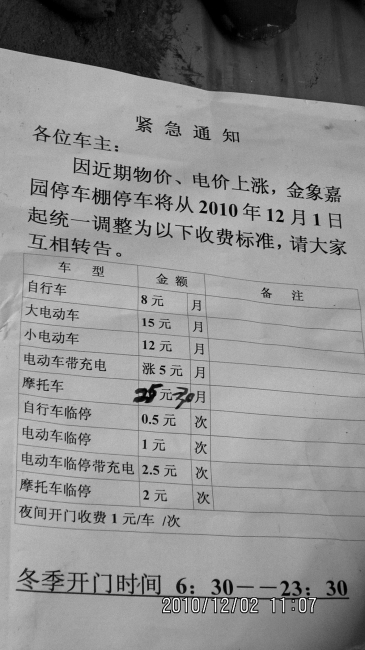 紧急通知
各位车主：
因近期物价、电价上涨，金象嘉
园停车棚停车将从2010年12月1日
起统一调整为以下收费标准，请大家
互相转告。
车 型 金 额 备 注
自行车 8元 月
大电动车 15元 月
小电动车 12元 月
电动车带充电 涨5元 月
摩托车 元30月
自行车临停 0.5元 次
电动车临停 1元 次
电动车临停带充电 2.5元 次
摩托车临停 2元 次
夜间开门收费1元/车 /次
冬季开门时间 6：30－－23：30
2010/12/02 11:07